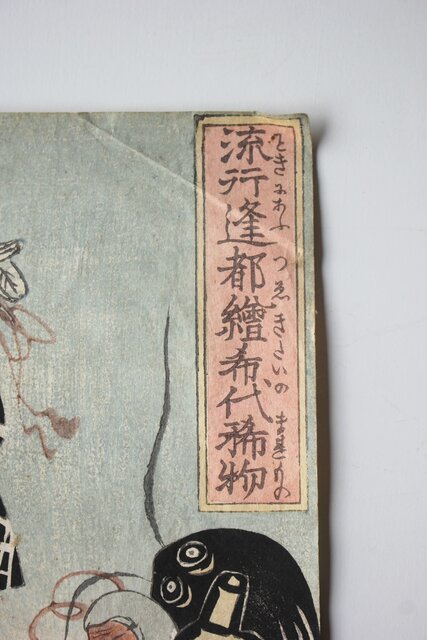 流行逢都繪希代稀物
ときにあふつゑきたいのまれもの